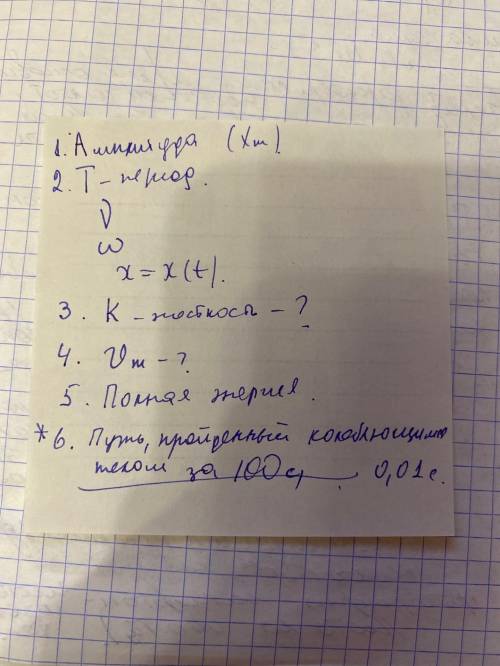 1. Амплитуда (Xm).
2. T - период.
ν
ω
x = x(t).
3. K - жосткость - ?
4. Vm - ?
5. Полная энергия.
*6. Путь, пройденный колеблющимся
телом за 100 с, 0,01 с.